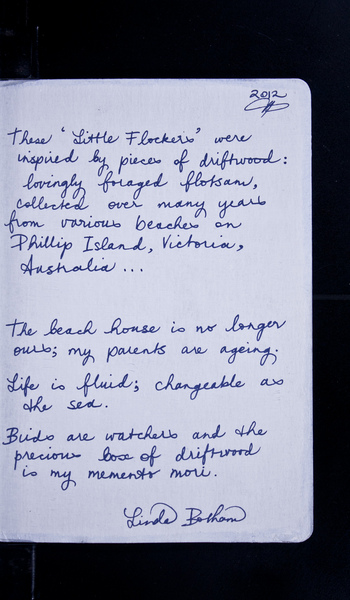 2012
These 'Little Flockers' were
inspired by pieces of driftwood:
lovingly foraged flotsam,
collected over many years
from various beaches on
Phillip Island, Victoria,
Australia ...
The beach house is no longer
ours; my parents are ageing.
Life is fluid; changeable as
the sea.
Birds are watchers and the
precious box of driftwood
is my memento mori.
Linda Botham